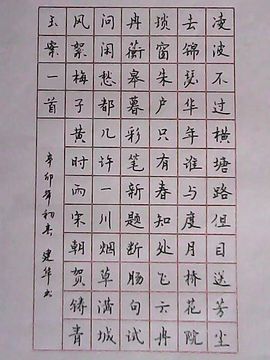 凌波不过横塘路但目送芳尘
去锦瑟华年谁与度月桥花院
琐窗朱户只有春知处飞云冉
冉蘅皋暮彩笔新题断肠句试
问闲愁都几许一川烟草满城
风絮梅子黄时雨宋朝贺铸青
玉案一首
辛卯年初 建华书